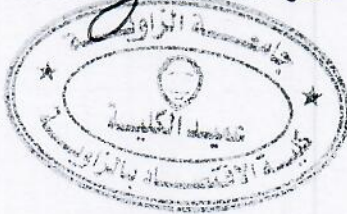 جامعـــة الزاويـــة
عميـد الكليـــة
كليـــة الاقتصـــاد بالزاويـــة